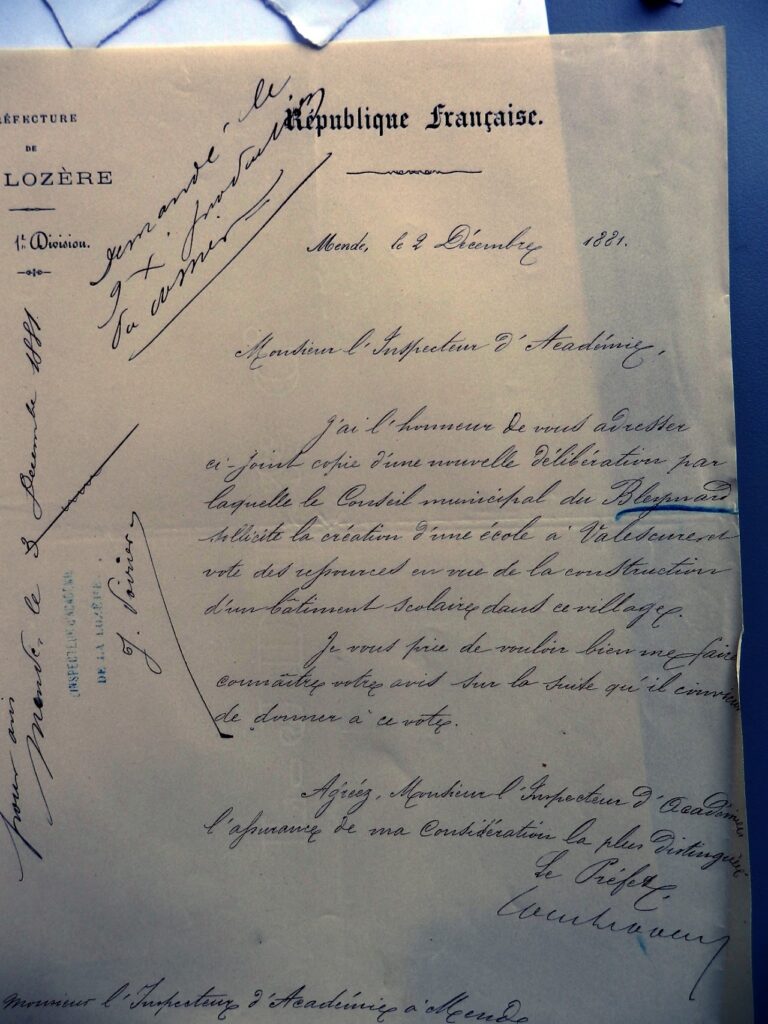 République Française.
RÉFECTURE
DE
LOZÈRE
1re Division.
demandé le
du dossier
Mende, le 2 Décembre 1881.
Monsieur l'Inspecteur d'Académie,
J'ai l'honneur de vous adresser
ci-joint copie d'une nouvelle délibération par
laquelle le Conseil municipal du Bleymard
sollicite la création d'une école à Valescure et
vote des ressources en vue de la construction
d'un bâtiment scolaire dans ce village.
Je vous prie de vouloir bien me faire
connaître votre avis sur la suite qu'il convient
de donner à ce vote.
Agréez, Monsieur l'Inspecteur d'Académie
l'assurance de ma considération la plus distinguée
Le Préfet,
Monsieur l'Inspecteur d'Académie à Mende
pour avis
Mende, le 3 Décembre 1881
INSPECTEUR D'ACADÉMIE
DE LA LOZÈRE